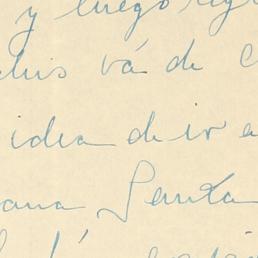 y luego reg
vá de C
idea de ir a
ana Santa